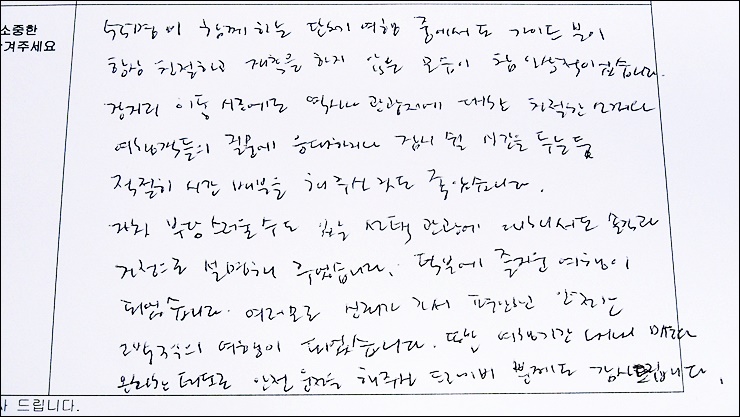 소중한
겨주세요
수십명이 함께 하는 단체 여행 중에서도 가이드 분이
항상 친절하고 재촉을 하지 않는 모습이 참 인상적이었습니다.
장거리 이동 시간에도 역사나 관광지에 대한 친절한 소개나
여행객들의 질문에 응대하거나 잠시 쉴 시간을 두는 등
적절히 시간 배분을 해주신 점도 좋았습니다.
자칫 부담스러울 수도 있는 선택 관광에 대해서도
설명해 주었습니다. 덕분에 즐거운 여행이
되었습니다. 여러모로 신뢰가 가서 편안하고 안전한
2박3일의 여행이 되었습니다. 또한 여행기간 내내
온화한 태도로 안전 운전을 해주신 드라이버 분께도 감사드립니다.
사 드립니다.